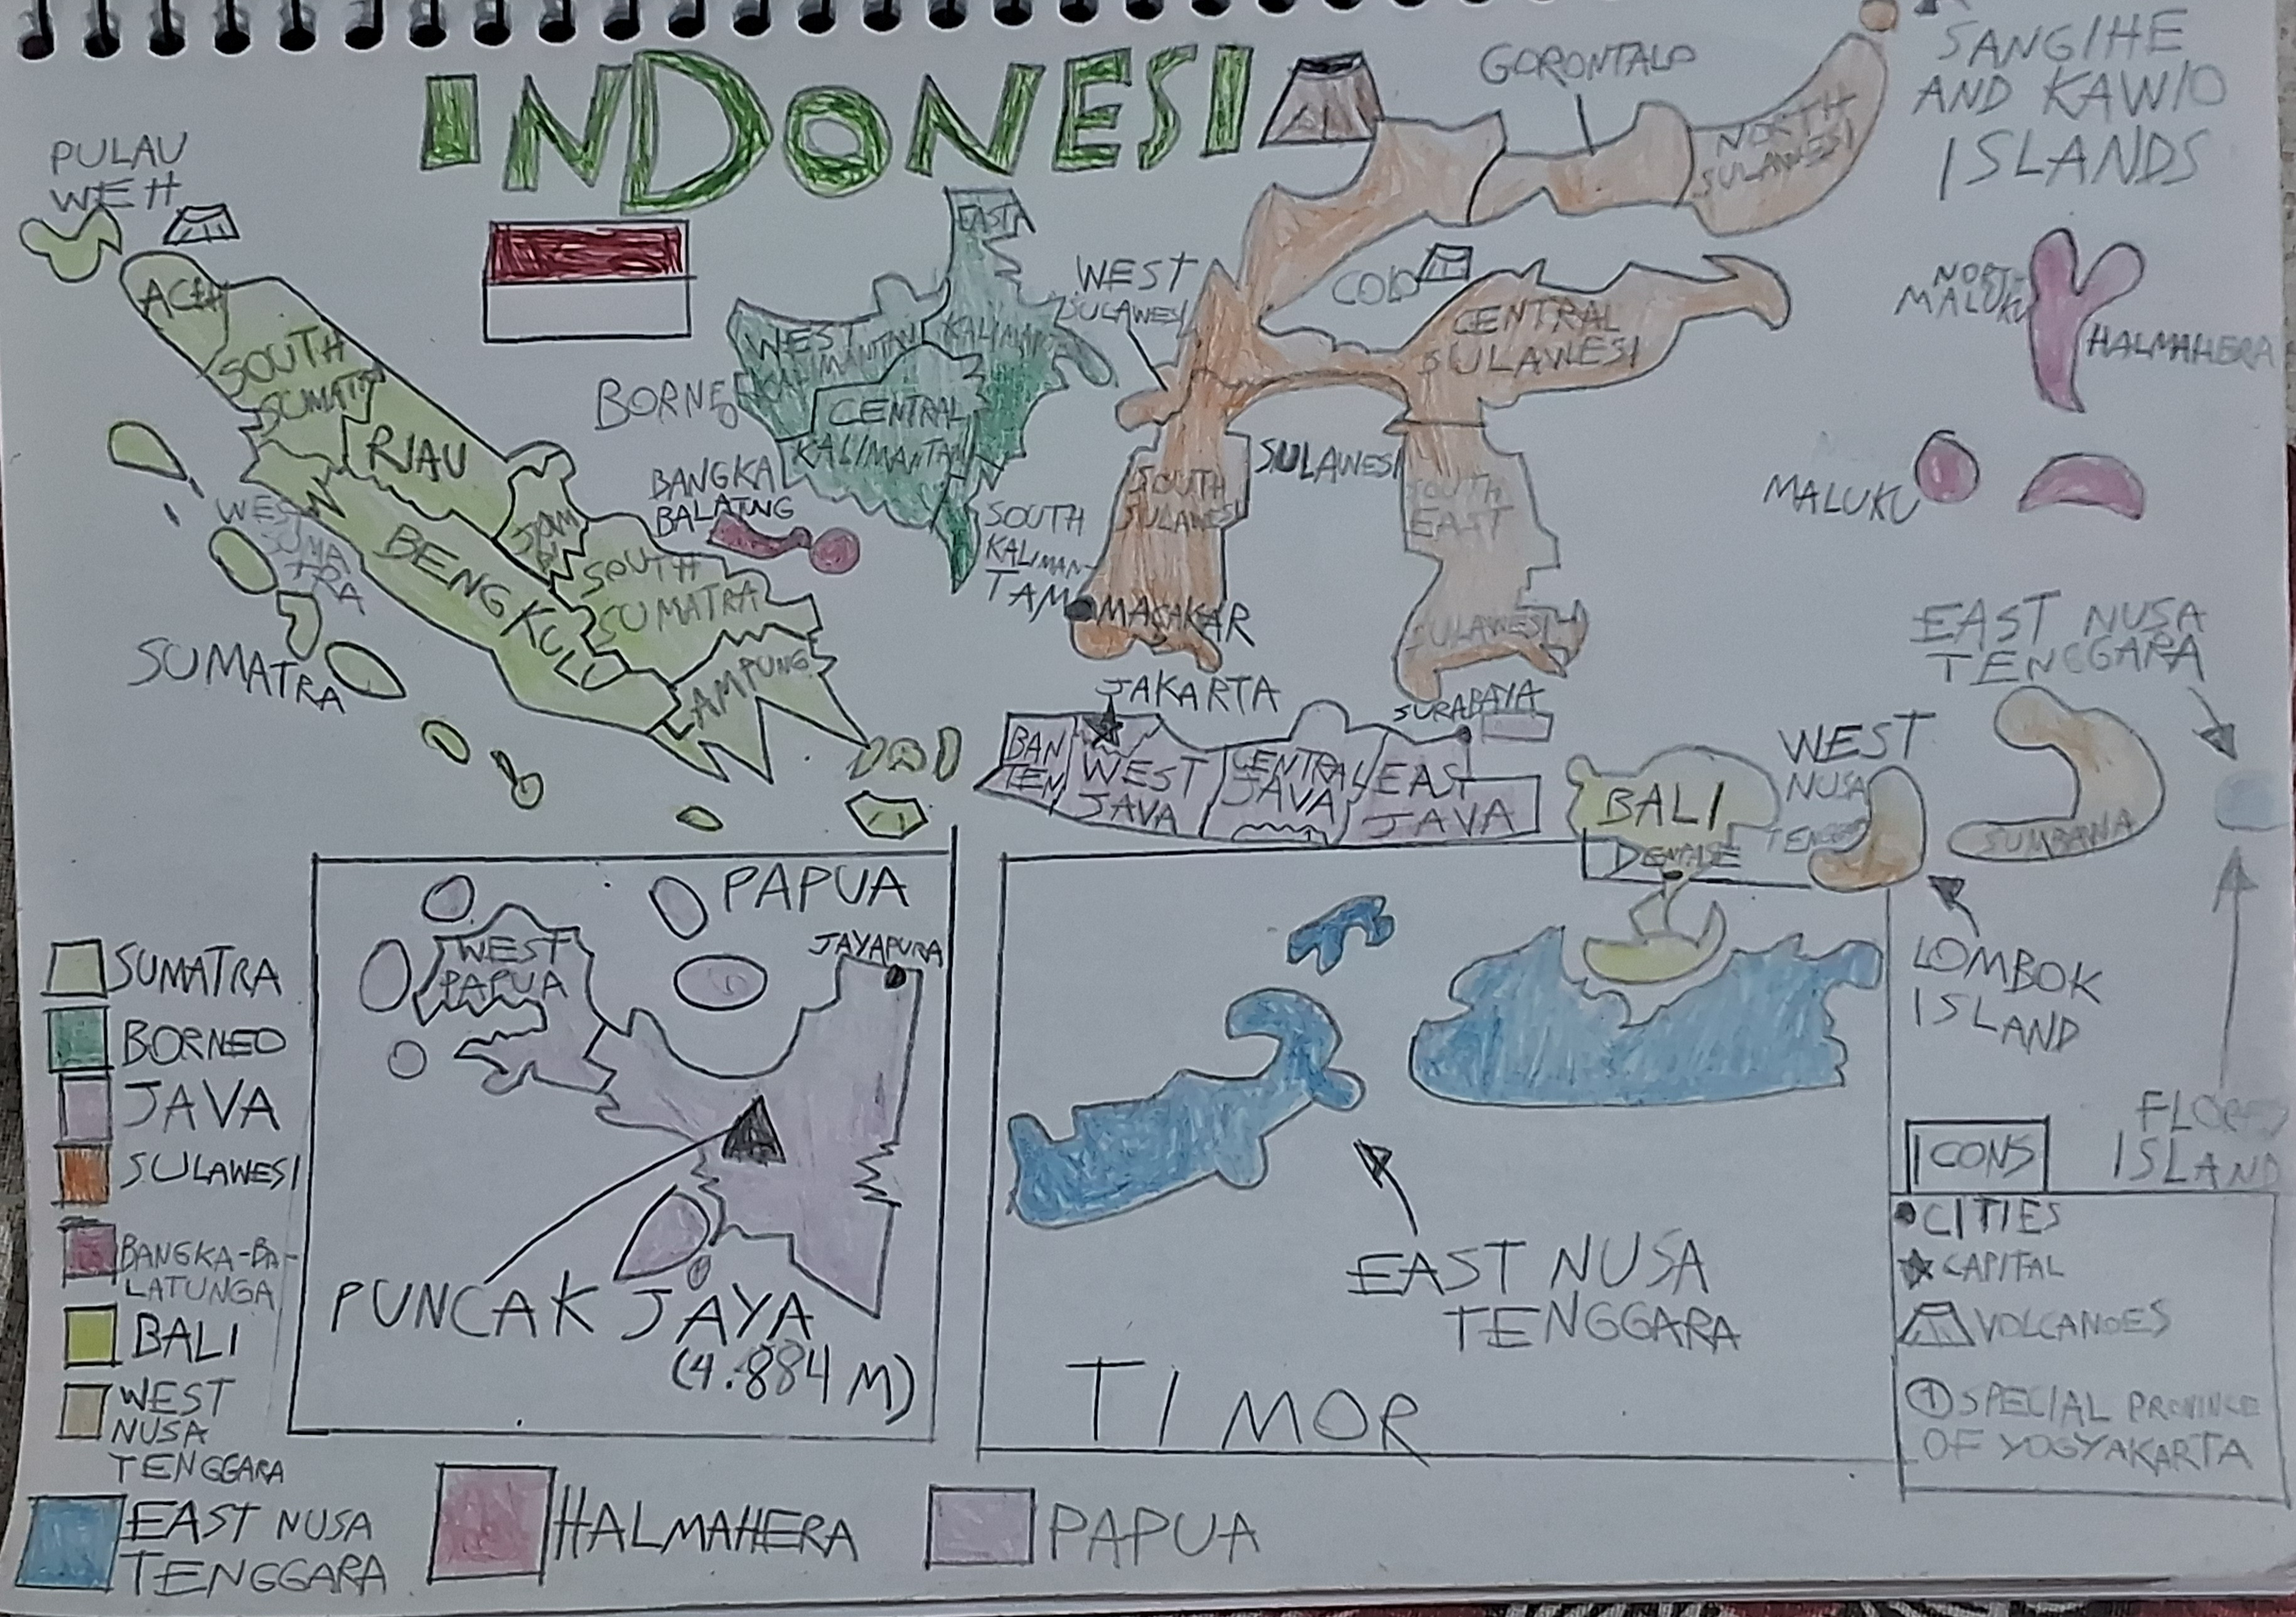 INDONESI
GORONTALO
SANGIHE
AND KAWIO
ISLANDS
PULAU
WEH
ACEH
SOUTH
SUMAT
RIAU
WEST
SUMA
TRA
BENGKULU
JAM
BI
SOUTH
SUMATRA
LAMPUNG
SUMATRA
BORNEO
EAST
KALIMAN
WEST
KALIMANTAN
CENTRAL
KALIMANTAN
BANGKA
BALATUNG
SOUTH
KALIMAN-
TAM
WEST
SULAWESI
NORTH
SULAWESI
COLO
CENTRAL
SULAWESI
SULAWESI
SOUTH
SULAWESI
SOUTH
EAST
SULAWESI
MACAKAR
NORT
MALUKU
HALMAHERA
MALUKU
JAKARTA
SURABAYA
BAN
TEN
WEST
JAVA
CENTRAL
JAVA
EAST
JAVA
BALI
WEST
NUSA
EAST NUSA
TENEGARA
SUMBANA
LOMBOK
ISLAND
FLORES
ISLAND
PAPUA
JAYAPURA
WEST
PAPUA
PUNCAK JAYA
(4.884 M)
EAST NUSA
TENGGARA
TIMOR
ICONS
CITIES
CAPITAL
VOLCANOES
1 SPECIAL PROVINCE
OF YOGYAKARTA
SUMATRA
BORNEO
JAVA
SULAWESI
BANGKA-BA-
LATUNGA
BALI
WEST
NUSA
TENGGARA
EAST NUSA
TENGGARA
HALMAHERA
PAPUA